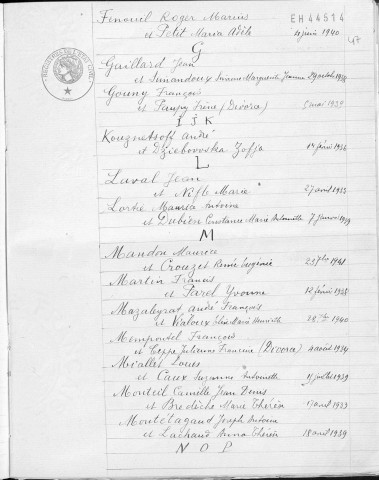 Fineuil Roger Marius EH44514
et Petit Maria Adèle 11 juin 1940
47
G
Guillard Jean
et Simandoux Marguerite Jeanne 29 octobre
Gouny François
et Paupy Irène (Divorce) 5 mai 1939
IJK
Kouznetsoff André
et Dziebovoska Zofja 1er février
L
Laval Jean
et Nifle Marie 27 avril 1933
Lortie Maurice Antoine
et Dubien Constance Marie Antoinette 7 janvier
M
Mandon Maurice
et Crouzet Renée 1941
Martin Francis
et Farel Yvonne 12 février
Mazaleyrat André François
et Valoux Marie Henriette 1940
François
et Ceppe Julienne Francine (Divorce) 4 août 1934
Mialler Louis
et Caux Suzanne Antoinette 11 juillet 1939
Monteil Camille Jean Denis
et Bredèche Marie Thérèse 17 avril 1933
Montétagaud Joseph Antoine
et Lachaud Anna Thérèse 18 avril 1939
NOP